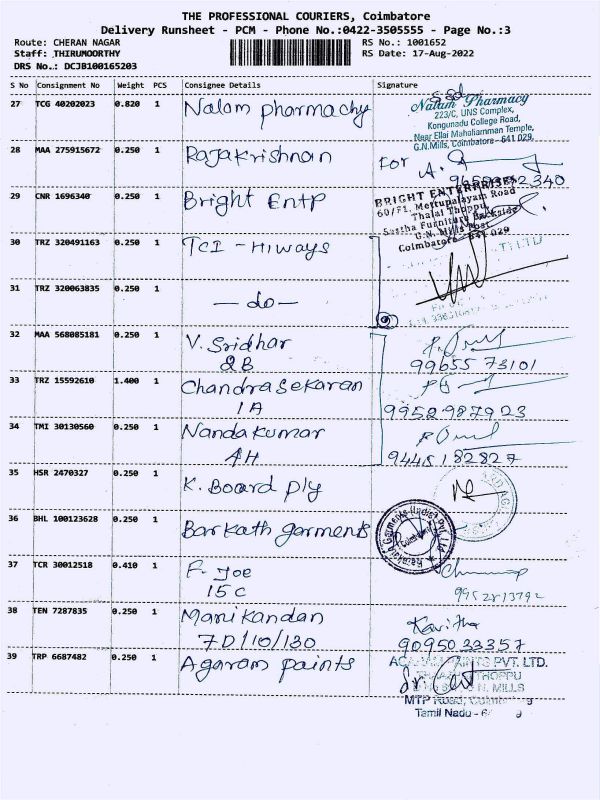 THE PROFESSIONAL COURIERS, Coimbatore
Delivery Runsheet - PCM - Phone No.:0422-3505555 - Page No.:3
Route: CHERAN NAGAR RS No.: 1001652
Staff: THIRUMOORTHY RS Date: 17-Aug-2022
DRS No.: DCJB100165203
S No Consignment No Weight PCS Consignee Details Signature
27 TCG 40202023 0.820 1 Nalam pharmachy
Nalam Pharmacy
223/C, UNS Complex,
Kongunadu College Road,
Near Ellai Mahaliamman Temple,
G.N.Mills, Coimbatore - 641 029.
28 MAA 275915672 0.250 1 Rajakrishnan
For A.
29 CNR 1696340 0.250 1 Bright Entp
BRIGHT ENTERPRISES
60/F1, Mettupalayam Road
Thalai Thoppu,
Sastha Furniture Backside
G.N. Mills Post
Coimbatore - 641 029
30 TRZ 320491163 0.250 1 TCI - Hiways
31 TRZ 320063835 0.250 1 — do —
32 MAA 568085181 0.250 1 V. Sridhar
2B
99655 73101
33 TRZ 15592610 1.400 1 Chandrasekaran
1A
9952987923
34 TMI 30130560 0.250 1 Nandakumar
4H
9445182827
35 HSR 2470327 0.250 1 K. Board ply
36 BHL 100123628 0.250 1 Barkath garments
37 TCR 30012518 0.410 1 F. Joe
15C
9952813792
38 TEN 7287835 0.250 1 Manikandan
7D/10/130
Kavitha
9095033357
39 TRP 6687482 0.250 1 Agaram paints
PAINTS PVT. LTD.
THOPPU
N. MILLS
MTP Road,
Tamil Nadu -